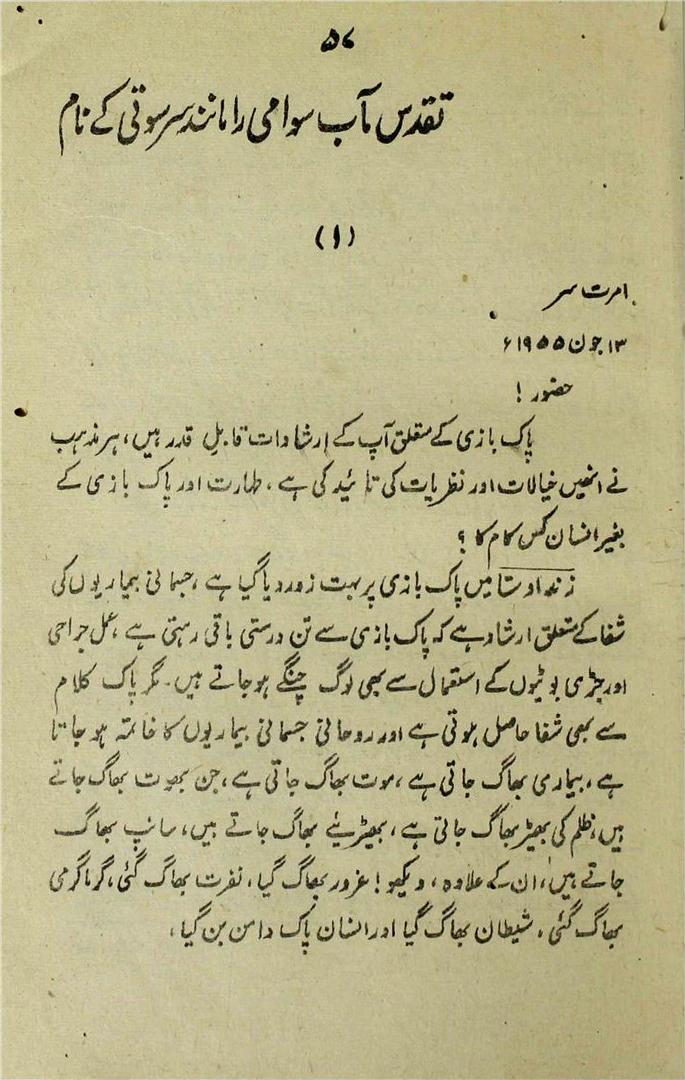 ۵۷
تقدس مآب سوامی رامانند سرسوتی کے نام
(۱)
امرت سر
۱۳ جون ۱۹۵۵ء
حضور !
پاک بازی کے متعلق آپ کے ارشادات قابلِ قدر ہیں، ہر مذہب
نے انھیں خیالات اور نظریات کی تائید کی ہے ، طہارت اور پاک بازی کے
بغیر انسان کس کام کا ؟
زند اوستا میں پاک بازی پر بہت زور دیا گیا ہے ، جسمانی بیماریوں کی
شفا کے متعلق ارشاد ہے کہ پاک بازی سے تن درستی باقی رہتی ہے ، عمل جراحی
اور جڑی بوٹیوں کے استعمال سے بھی لوگ چنگے ہو جاتے ہیں۔ مگر پاک کلام
سے بھی شفا حاصل ہوتی ہے اور روحانی جسمانی بیماریوں کا خاتمہ ہو جاتا
ہے ، بیماری بھاگ جاتی ہے ، موت بھاگ جاتی ہے ، جن بھوت بھاگ جاتے
ہیں ، ظلم کی بھیڑ بھاگ جاتی ہے ، بھیڑیئے بھاگ جاتے ہیں ، سانپ بھاگ
جاتے ہیں ، ان کے علاوہ ، دیکھو ! غرور بھاگ گیا ، نفرت بھاگ گئی ، گرما گرمی
بھاگ گئی ، شیطان بھاگ گیا اور انسان پاک دامن بن گیا ،